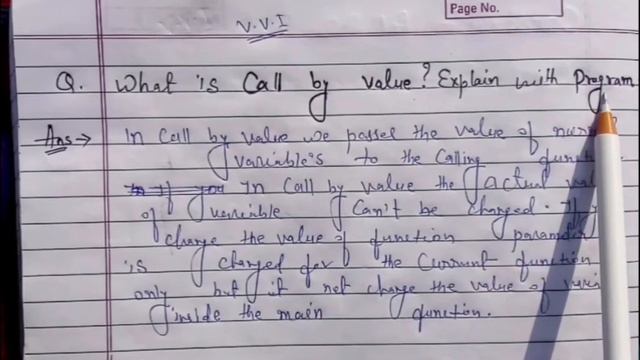 Page No.
V.V.I
Q. What is Call by value? Explain with Program
Ans→ In Call by value we passed the value of
variable's to the Calling function.
In Call by value the actual
of variable Can't be changed.
change the value of function parameter
is changed for the Current function
only but it not change the value of
inside the main function.